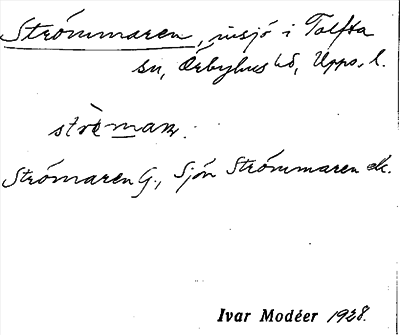 Strömmaren, insjö i Tolfta
sn, Örbyhus hd, Upps. l.
strö̀maṛ:
Strömaren G., Sjön Strömmaren ek.
Ivar Modéer 1928.